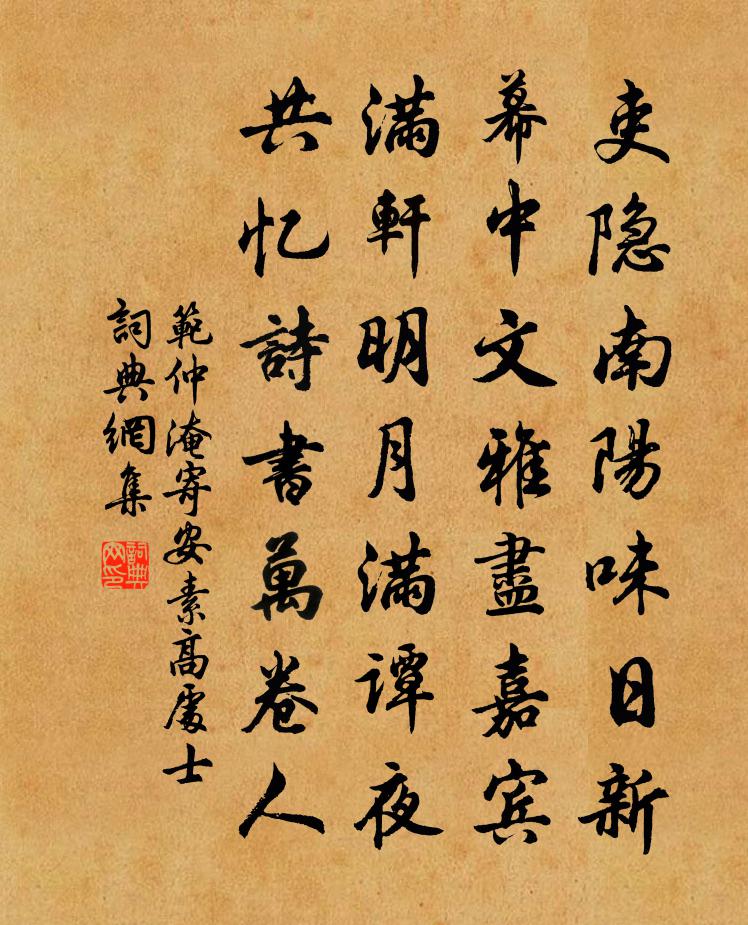 吏隐南陽味日新
幕中文雅盡嘉宾
满軒明月满譚夜
共忆詩書萬卷人
範仲淹寄安素高處士
詞典網集
詞典网印